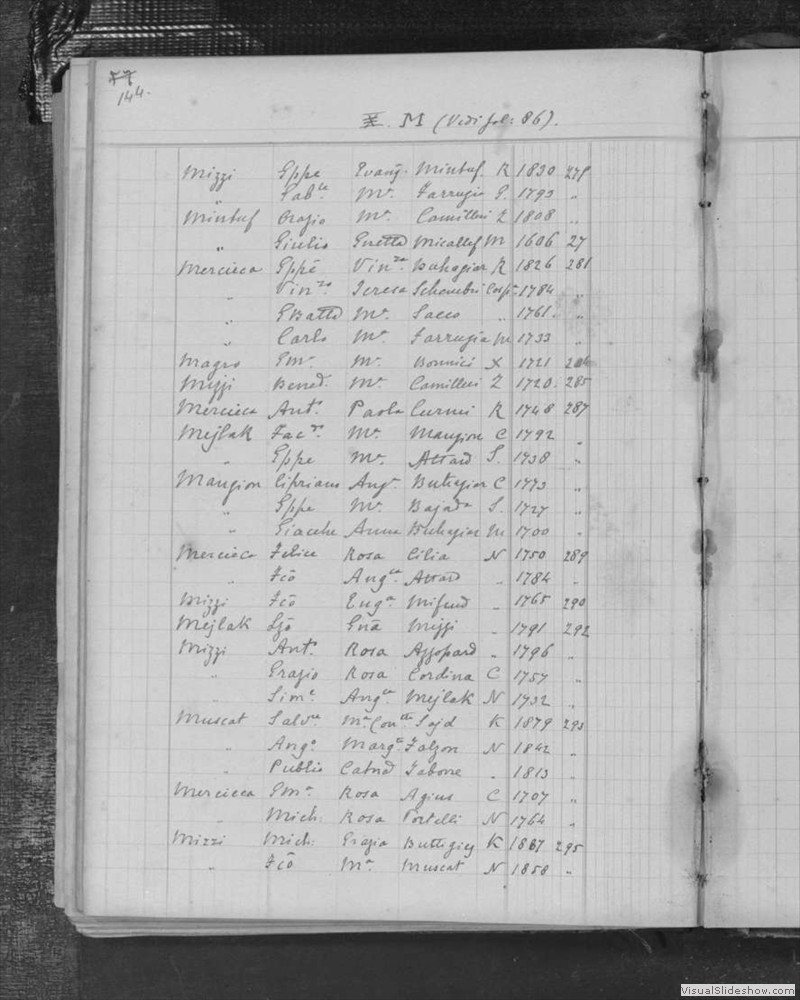 144.
M (Vedi fol: 86).
Mizzi Gppe Evang. Mintuf R 1830 278
" Fab.le Mª. Farrugia S. 1793 "
Mintuf Orazio Mª. Camilleri Z 1808 "
" Giulio Gnetta Micallef M 1606 27
Mercieca Gppē Vin.za Buhagiar R 1826 281
" Vin.zo Teresa Schembri Cosp. 1784 "
" GBatta Mª. Sacco " 1761. "
" Carlo Mª. Farrugia M 1733 "
Magro Gm.º Mª. Bonnici X 1721
Miffi Bened. Mª. Camilleri Z 1720. 285
Mercieca Ant.º Paola Curmi R 1748 287
Mejlak Jac.º Mª. Mangion C 1792 "
" Gppe Mª. Attard S. 1738 "
Mangion Ciprians Ang.ª Buhagiar C 1773 "
" Gppe Mª. Bajada S. 1727 "
" Giacche Anna Buhagiar M 1700 "
Mercieca Felice Rosa Cilia N 1750 289
" Fcō Ang.ca Attard " 1784 "
Mizzi Fcō Eug.a Mifsud " 1765 290
Mejlak Gjō Gnā Miffi " 1791 292
Mizzi Ant.º Rosa Azzopard " 1796 "
" Grazio Rosa Cordina C 1757 "
" Sim.e Ang.ca Mejlak N 1732 "
Muscat Salv.re Mª Con.tta Sajd K 1879 293
" Ang.º Marg.ta Falzon N 1842 "
" Publio Catnā Tabone " 1813 "
Mercieca Gm.º Rosa Agius C 1707 "
" Mich: Rosa Portelli N 1764 "
Mizzi Mich: Grazia Buttigieg K 1887 295
" Fcō Mª Muscat N 1858 "
VisualSlideshow.com